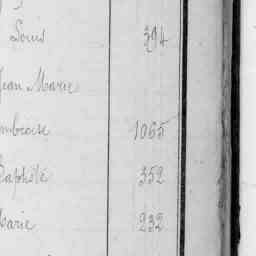 Louis 394
Jean Marie
mbroise 1065
Baptiste 352
Marie 232